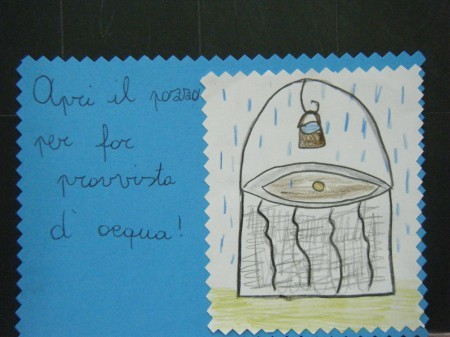 Apri il pozzo
per far
provvista
d'acqua!